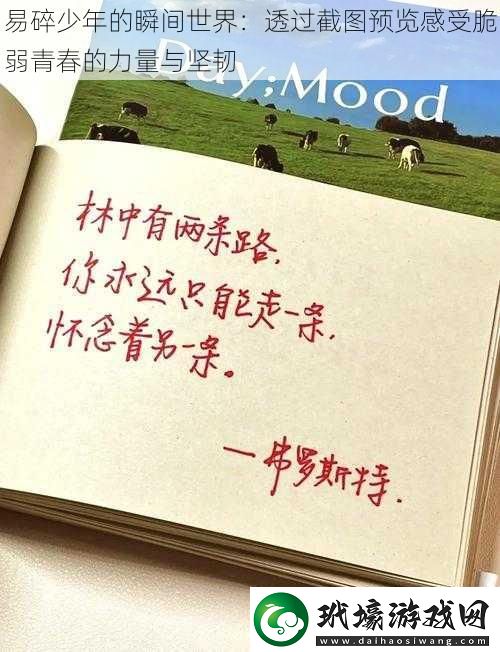 易碎少年的瞬间世界：透过截图预览感受脆
弱青春的力量与坚韧
Day;Mood
林中有两条路，
你永远只能走一条，
怀念着另一条。
—弗罗斯特.
玳壕游戏网
www.daihaosiwang.com